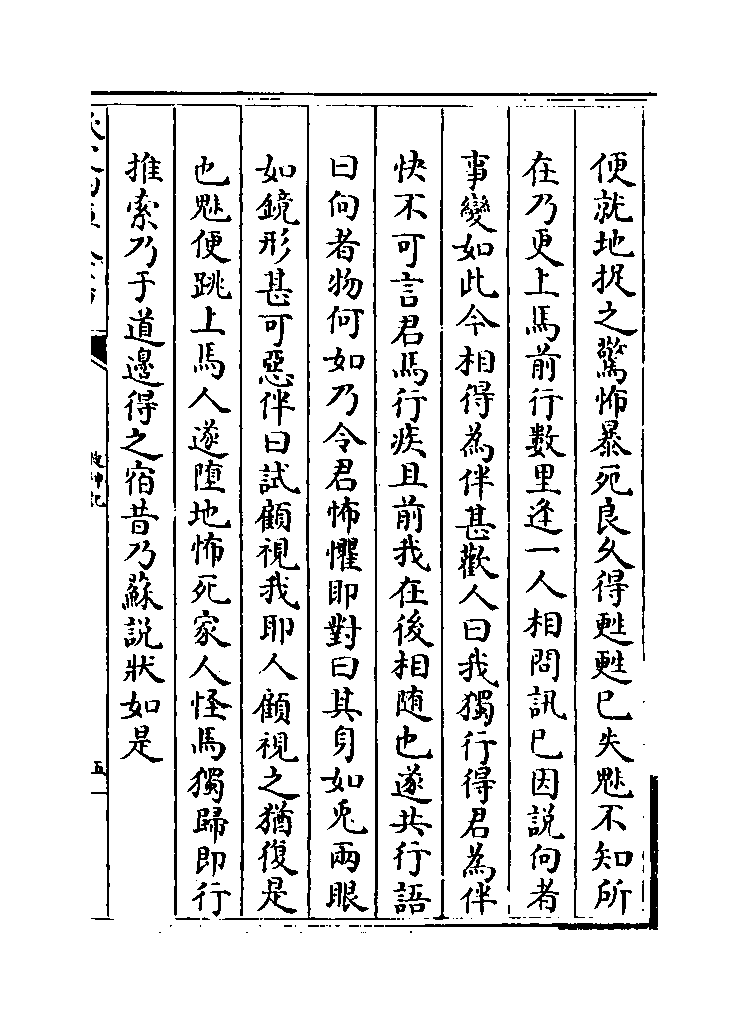 便就地捉之驚怖暴死良久得甦甦已失魅不知所
在乃更上馬前行數里逢一人相問訊已因說向者
事變如此今相得為伴甚歡人曰我獨行得君為伴
快不可言君馬行疾且前我在後相随也遂共行語
曰向者物何如乃令君怖懼耶對曰其身如兎兩眼
如鏡形甚可惡伴曰試顧視我耶人顧視之猶復是
也魅便跳上馬人遂堕地怖死家人怪馬獨歸即行
推索乃于道邊得之宿昔乃蘇說狀如是
搜神記
五